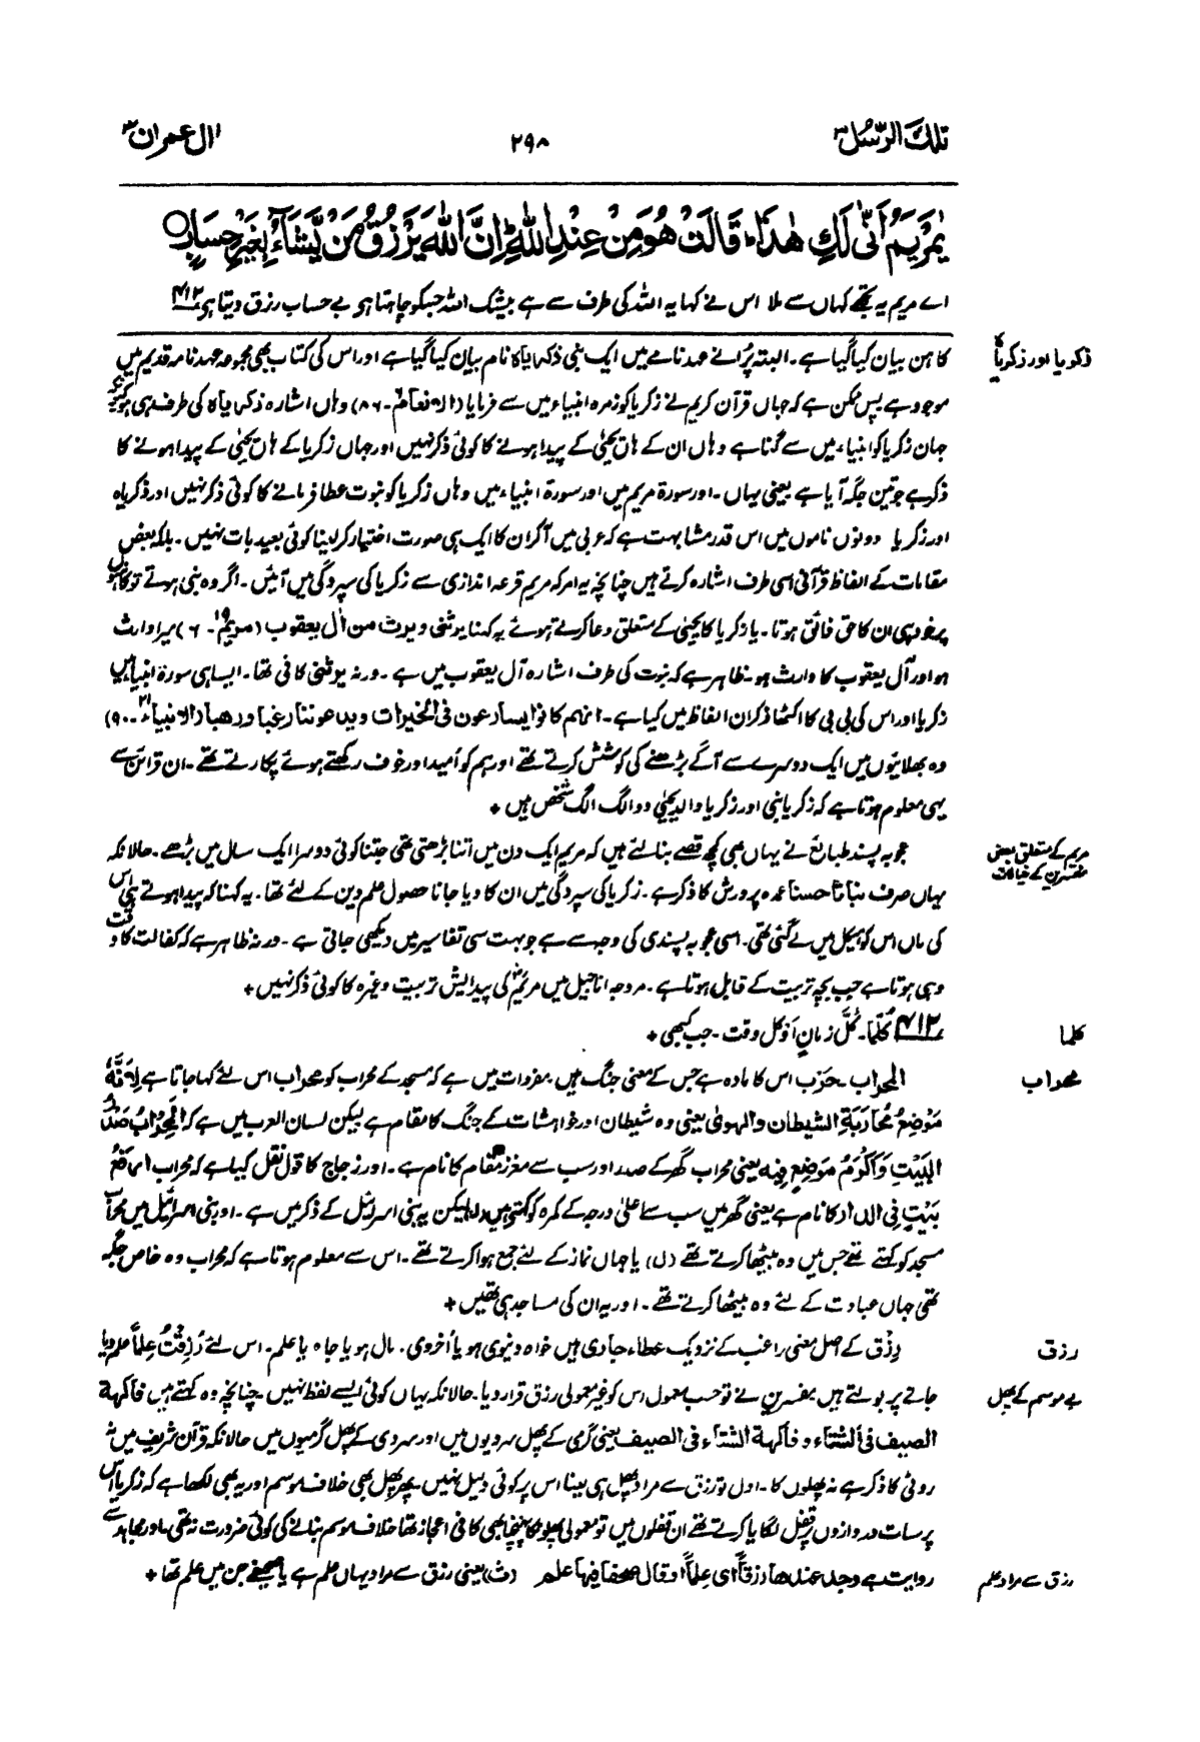 تلك الرّسل ۳
۲۹۸
اٰل عمران ۳
يٰمَرْيَمُ اَنّٰى لَكِ هٰذَا ؕ قَالَتْ هُوَ مِنْ عِنْدِ اللّٰهِ ؕ اِنَّ اللّٰهَ يَرْزُقُ مَنْ يَّشَآءُ بِغَيْرِ حِسَابٍ ○
اے مریم یہ تجھے کہاں سے ملا اس نے کہا یہ اللہ کی طرف سے ہے بیشک اللہ جسکو چاہتا ہو بے حساب رزق دیتا ہو ۴۱۲
زکریا اور ذکریاہ
کاہن بیان کیا گیا ہے۔ البتہ پُرانے عہد نامے میں ایک نبی ذکریاہ کا نام بیان کیا گیا ہے اور اس کی کتاب بھی مجموعہ عہد نامہ قدیم میں
موجود ہے پس ممکن ہے کہ جہاں قرآن کریم نے زکریا کو زمرہ انبیاء میں سے فرمایا (الانعام ۶۔ ۸۶) وہاں اشارہ ذکریاہ کی طرف ہی ہو کیونکہ
جہاں زکریا کو انبیاء میں سے گنا ہے وہاں ان کے ہاں یحییٰ کے پیدا ہونے کا کوئی ذکر نہیں اور جہاں زکریا کے ہاں یحییٰ کے پیدا ہونے کا
ذکر ہے جو تین جگہ آیا ہے یعنی یہاں۔ اور سورۃ مریم میں اور سورۃ انبیاء میں وہاں زکریا کو نبوت عطا فرمانے کا کوئی ذکر نہیں اور ذکریاہ
اور زکریا دونوں ناموں میں اس قدر مشابہت ہے کہ عربی میں آکر ان کا ایک ہی صورت اختیار کر لینا کوئی بعید بات نہیں۔ بلکہ بعض
مقامات کے الفاظ قرآنی اسی طرف اشارہ کرتے ہیں چنانچہ یہ امر کہ مریم قرعہ اندازی سے زکریا کی سپردگی میں آئیں۔ اگر وہ نبی ہوتے تو کاہنوں
پر خود ہی ان کا حق فائق ہوتا۔ یا زکریا کا یحییٰ کے متعلق دعا کرتے ہوئے یہ کہنا یرثنی ویرث من اٰل یعقوب (مریم ۱۹۔ ۶) میرا وارث
ہو اور آل یعقوب کا وارث ہو۔ ظاہر ہے کہ نبوت کی طرف اشارہ آل یعقوب میں ہے۔ ورنہ یرثنی کافی تھا۔ ایسا ہی سورۃ انبیاء میں
زکریا اور اس کی بی بی کا اکٹھا ذکر ان الفاظ میں کیا ہے۔ انہم کانوا یسارعون فی الخیرات ویدعوننا رغبا ورھبا (الانبیاء ۲۱۔ ۹۰)
وہ بھلائیوں میں ایک دوسرے سے آگے بڑھنے کی کوشش کرتے تھے اور ہم کو اُمید اور خوف رکھتے ہوئے پکارتے تھے۔ ان قرائن سے
یہی معلوم ہوتا ہے کہ زکریا نبی اور زکریا والد یحییٰ دو الگ الگ شخص ہیں +
مریم کے متعلق بعض
مفسرین کے خیالات
عجوبہ پسند طبائع نے یہاں بھی کچھ قصے بنائے ہیں کہ مریم ایک دن میں اتنا بڑھتی تھی جتنا کوئی دوسرا ایک سال میں بڑھے۔ حالانکہ
یہاں صرف نباتا حسنا عمدہ پرورش کا ذکر ہے۔ زکریا کی سپردگی میں ان کا دیا جانا حصول علم دین کے لئے تھا۔ یہ کہنا کہ پیدا ہوتے ہی اس
کی ماں اس کو ہیکل میں لے گئی تھی۔ اسی عجوبہ پسندی کی وجہ سے ہے جو بہت سی تفاسیر میں دیکھی جاتی ہے۔ ورنہ ظاہر ہے کہ کفالت کا وقت
وہی ہوتا ہے جب بچہ تربیت کے قابل ہوتا ہے۔ مروجہ اناجیل میں مریمؑ کی پیدایش تربیت وغیرہ کا کوئی ذکر نہیں +
کلما
۴۱۲ کُلَّمَا۔ کُلَّ زمانٍ اَو کل وقت۔ جب کبھی +
محراب
المحراب۔ حرب اس کا مادہ ہے جس کے معنی جنگ ہیں۔ مفردات میں ہے کہ مسجد کے محراب کو محراب اس لئے کہا جاتا ہے لِاَنَّهُ
مَوْضِعُ مُحَارَبَةِ الشیطان والہویٰ یعنی وہ شیطان اور خواہشات کے جنگ کا مقام ہے لیکن لسان العرب میں ہے کہ المِحْرَابُ صَدْرُ
البَيْتِ وَاَكْرَمُ مَوْضِعٍ فِيْهِ یعنی محراب گھر کے صدر اور سب سے معزز مقام کا نام ہے۔ اور زجاج کا قول نقل کیا ہے کہ محراب ارفع
بَيْتٍ فی الدار کا نام ہے یعنی گھر میں سب سے اعلیٰ درجہ کے کمرہ کو کہتے ہیں (ل) لیکن یہ بنی اسرائیل کے ذکر میں ہے۔ اور بنی اسرائیل میں محراب
مسجد کو کہتے تھے جس میں وہ بیٹھا کرتے تھے (ل) یا جہاں نماز کے لئے جمع ہوا کرتے تھے۔ اس سے معلوم ہوتا ہے کہ محراب وہ خاص جگہ
تھی جہاں عبادت کے لئے وہ بیٹھا کرتے تھے۔ اور یہ ان کی مساجد ہی تھیں +
رزق
رزق کے اصل معنی راغب کے نزدیک عطاء جاری ہیں خواہ دنیوی ہو یا اُخروی۔ مال ہو یا جاہ یا علم۔ اس لئے رُزِقْتُ عِلماً علم دیا
بے موسم کے پھل
جانے پر بولتے ہیں۔ مفسرین نے تو حسب معمول اس کو غیر معمولی رزق قرار دیا۔ حالانکہ یہاں کوئی ایسے لفظ نہیں چنانچہ وہ کہتے ہیں فاکہۃ
الصیف فی الشتاء وفاکہۃ الشتاء فی الصیف یعنی گرمی کے پھل سردیوں میں اور سردی کے پھل گرمیوں میں حالانکہ قرآن شریف میں نہ
روئی کا ذکر ہے نہ پھلوں کا۔ اول تو رزق سے مراد پھل ہی لینا اس پر کوئی دلیل نہیں۔ پھر پھل بھی خلاف موسم اور یہ بھی لکھا ہے کہ زکریا اس
پر سات دروازوں پر قفل لگایا کرتے تھے ان قفلوں میں تو معمولی پھلوں کا پہنچنا بھی کافی اعجاز تھا خلاف موسم بنانے کی کوئی ضرورت نہ تھی۔ اور مجاہد سے
رزق سے مراد علم
روایت ہے وجد عندھا رزقاً ای علماً او قال صحفا فیہا علم (ث) یعنی رزق سے مراد یہاں علم ہے یا صحیفے جن میں علم تھا +